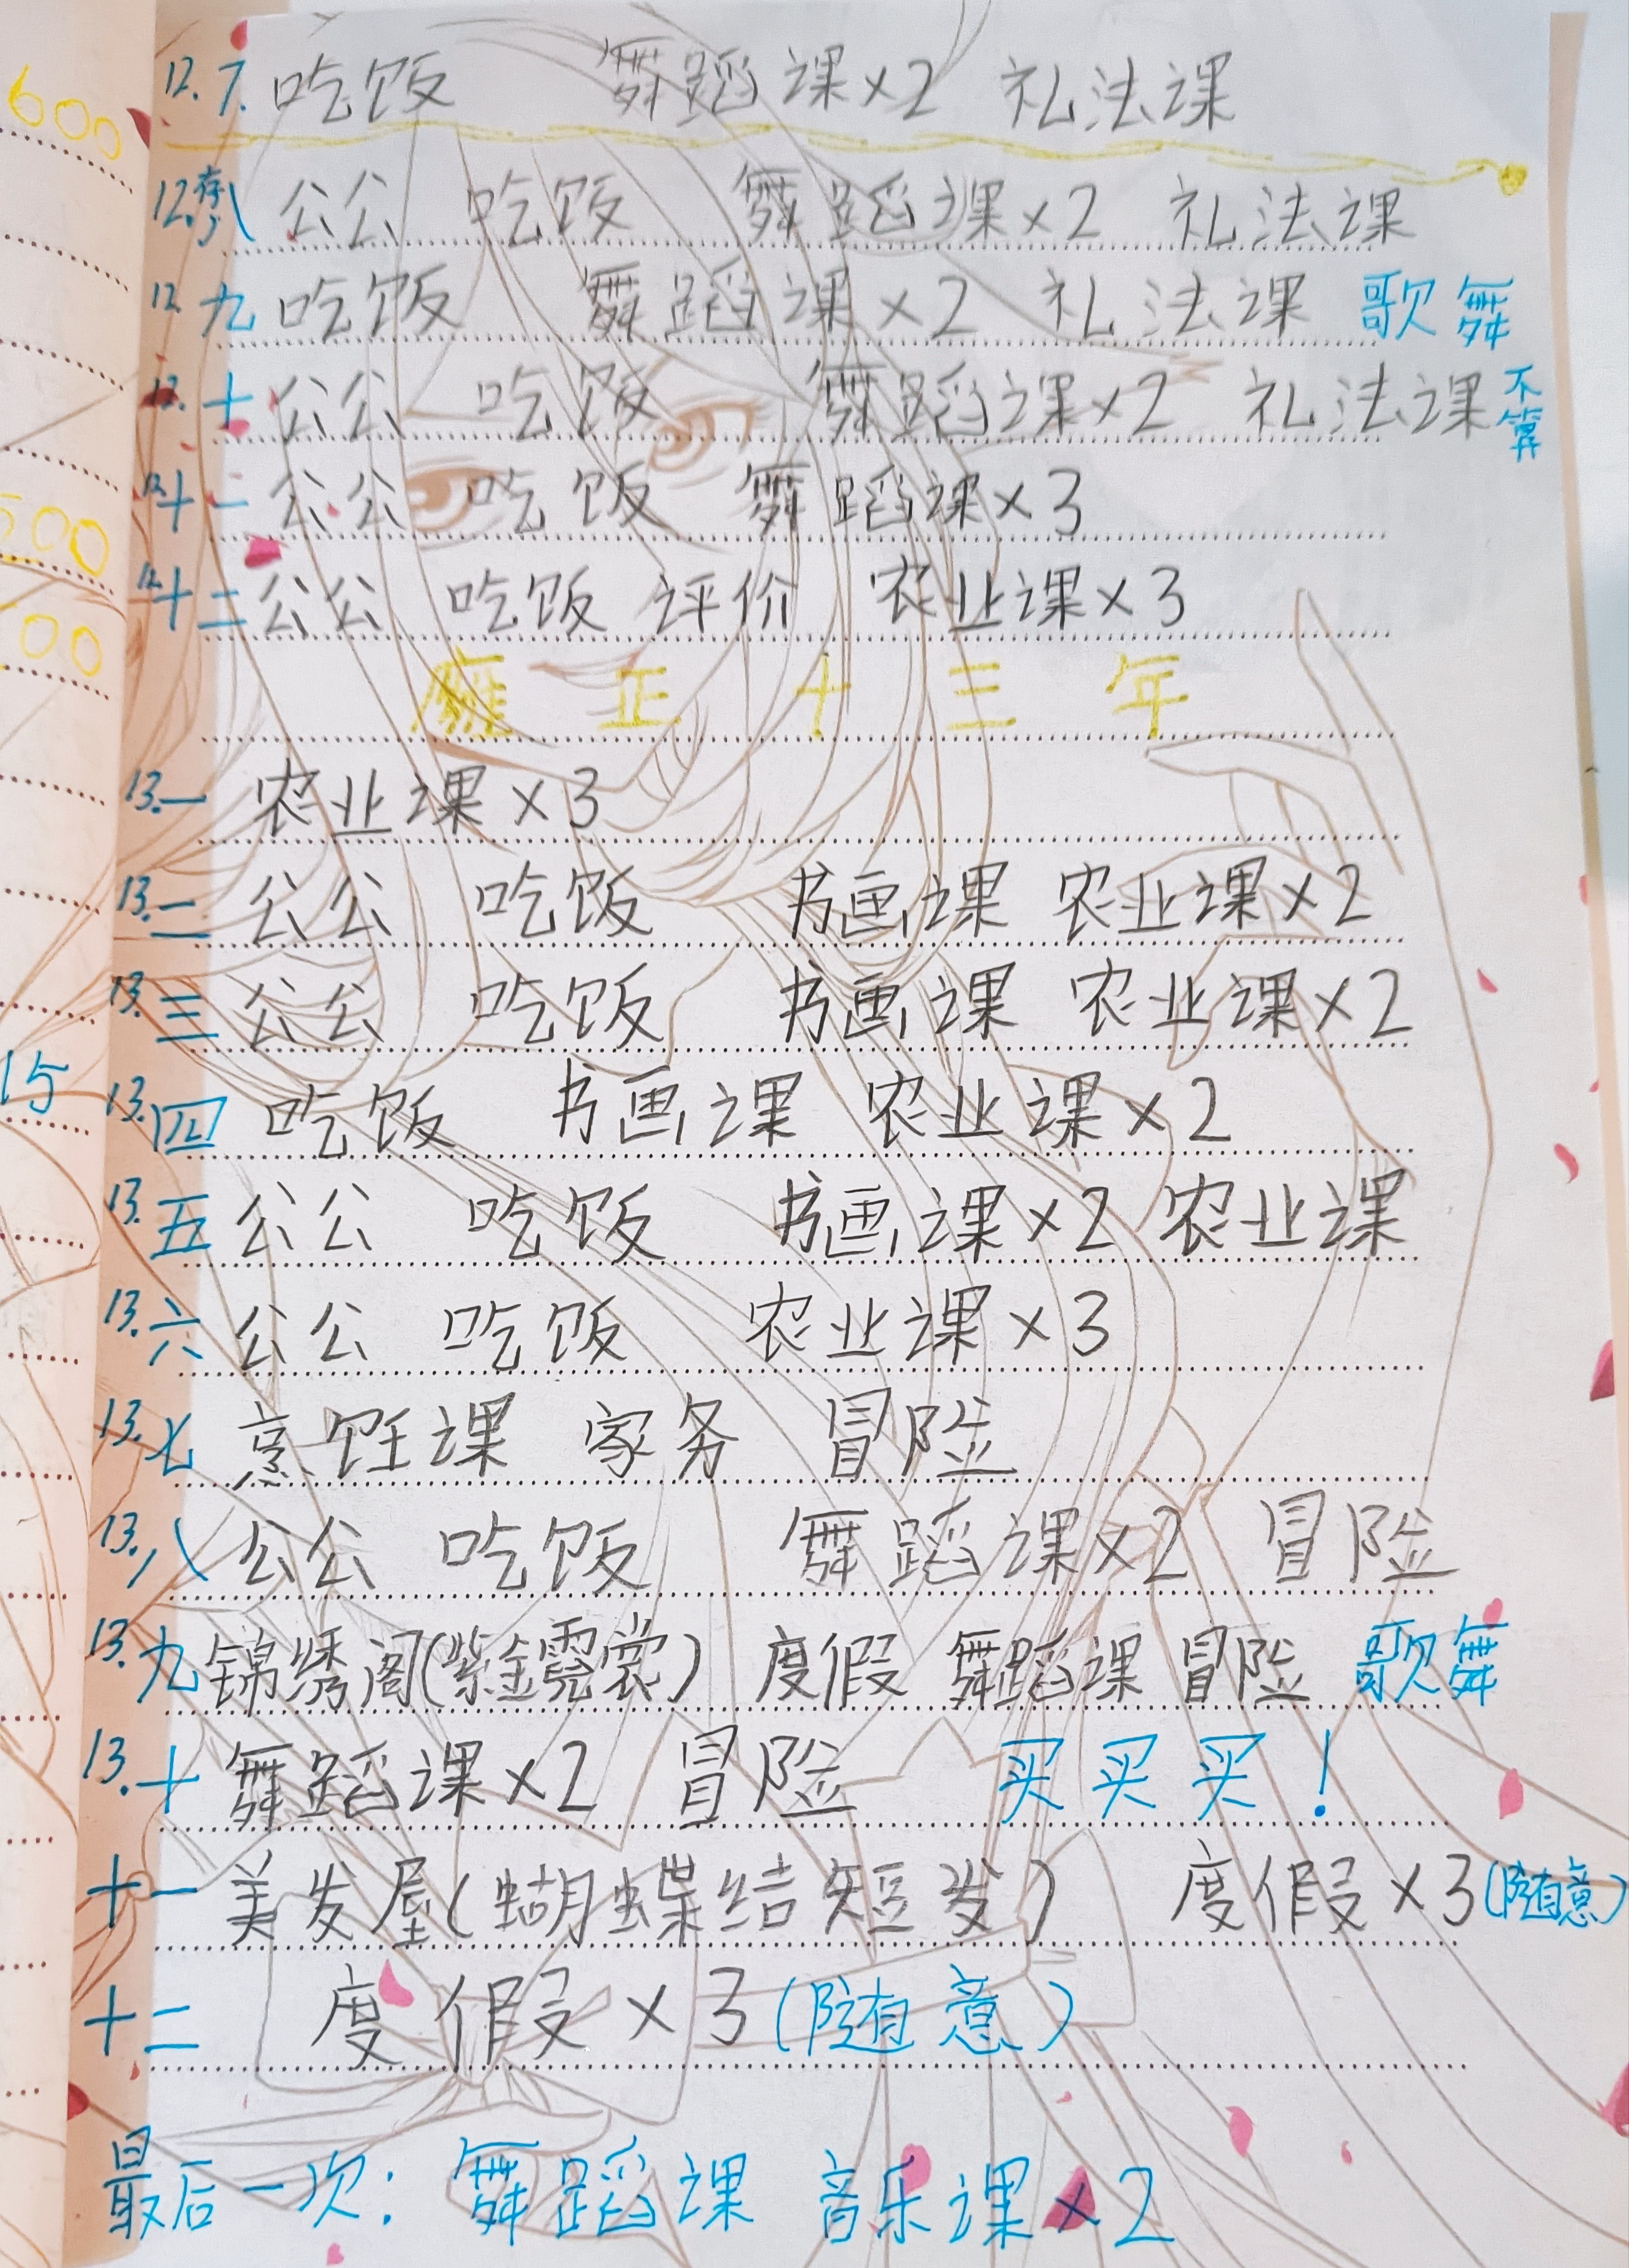 600
12.7. 吃饭 舞蹈课×2 礼法课
12.八 公公 吃饭 舞蹈课×2 礼法课
12.九 吃饭 舞蹈课×2 礼法课 歌舞
12.十 公公 吃饭 舞蹈课×2 礼法课 不算
12.十一 公公 吃饭 舞蹈课×3
12.十二 公公 吃饭 评价 农业课×3
雍正十三年
13.一 农业课×3
13.二 公公 吃饭 书画课 农业课×2
13.三 公公 吃饭 书画课 农业课×2
13.四 吃饭 书画课 农业课×2
13.五 公公 吃饭 书画课×2 农业课
13.六 公公 吃饭 农业课×3
13.七 烹饪课 家务 冒险
13.八 公公 吃饭 舞蹈课×2 冒险
13.九 锦绣阁(紫金霓裳) 度假 舞蹈课 冒险 歌舞
13.十 舞蹈课×2 冒险 买买买!
十一 美发屋(蝴蝶结短发) 度假×3(随意)
十二 度假×3(随意)
最后一次: 舞蹈课 音乐课×2